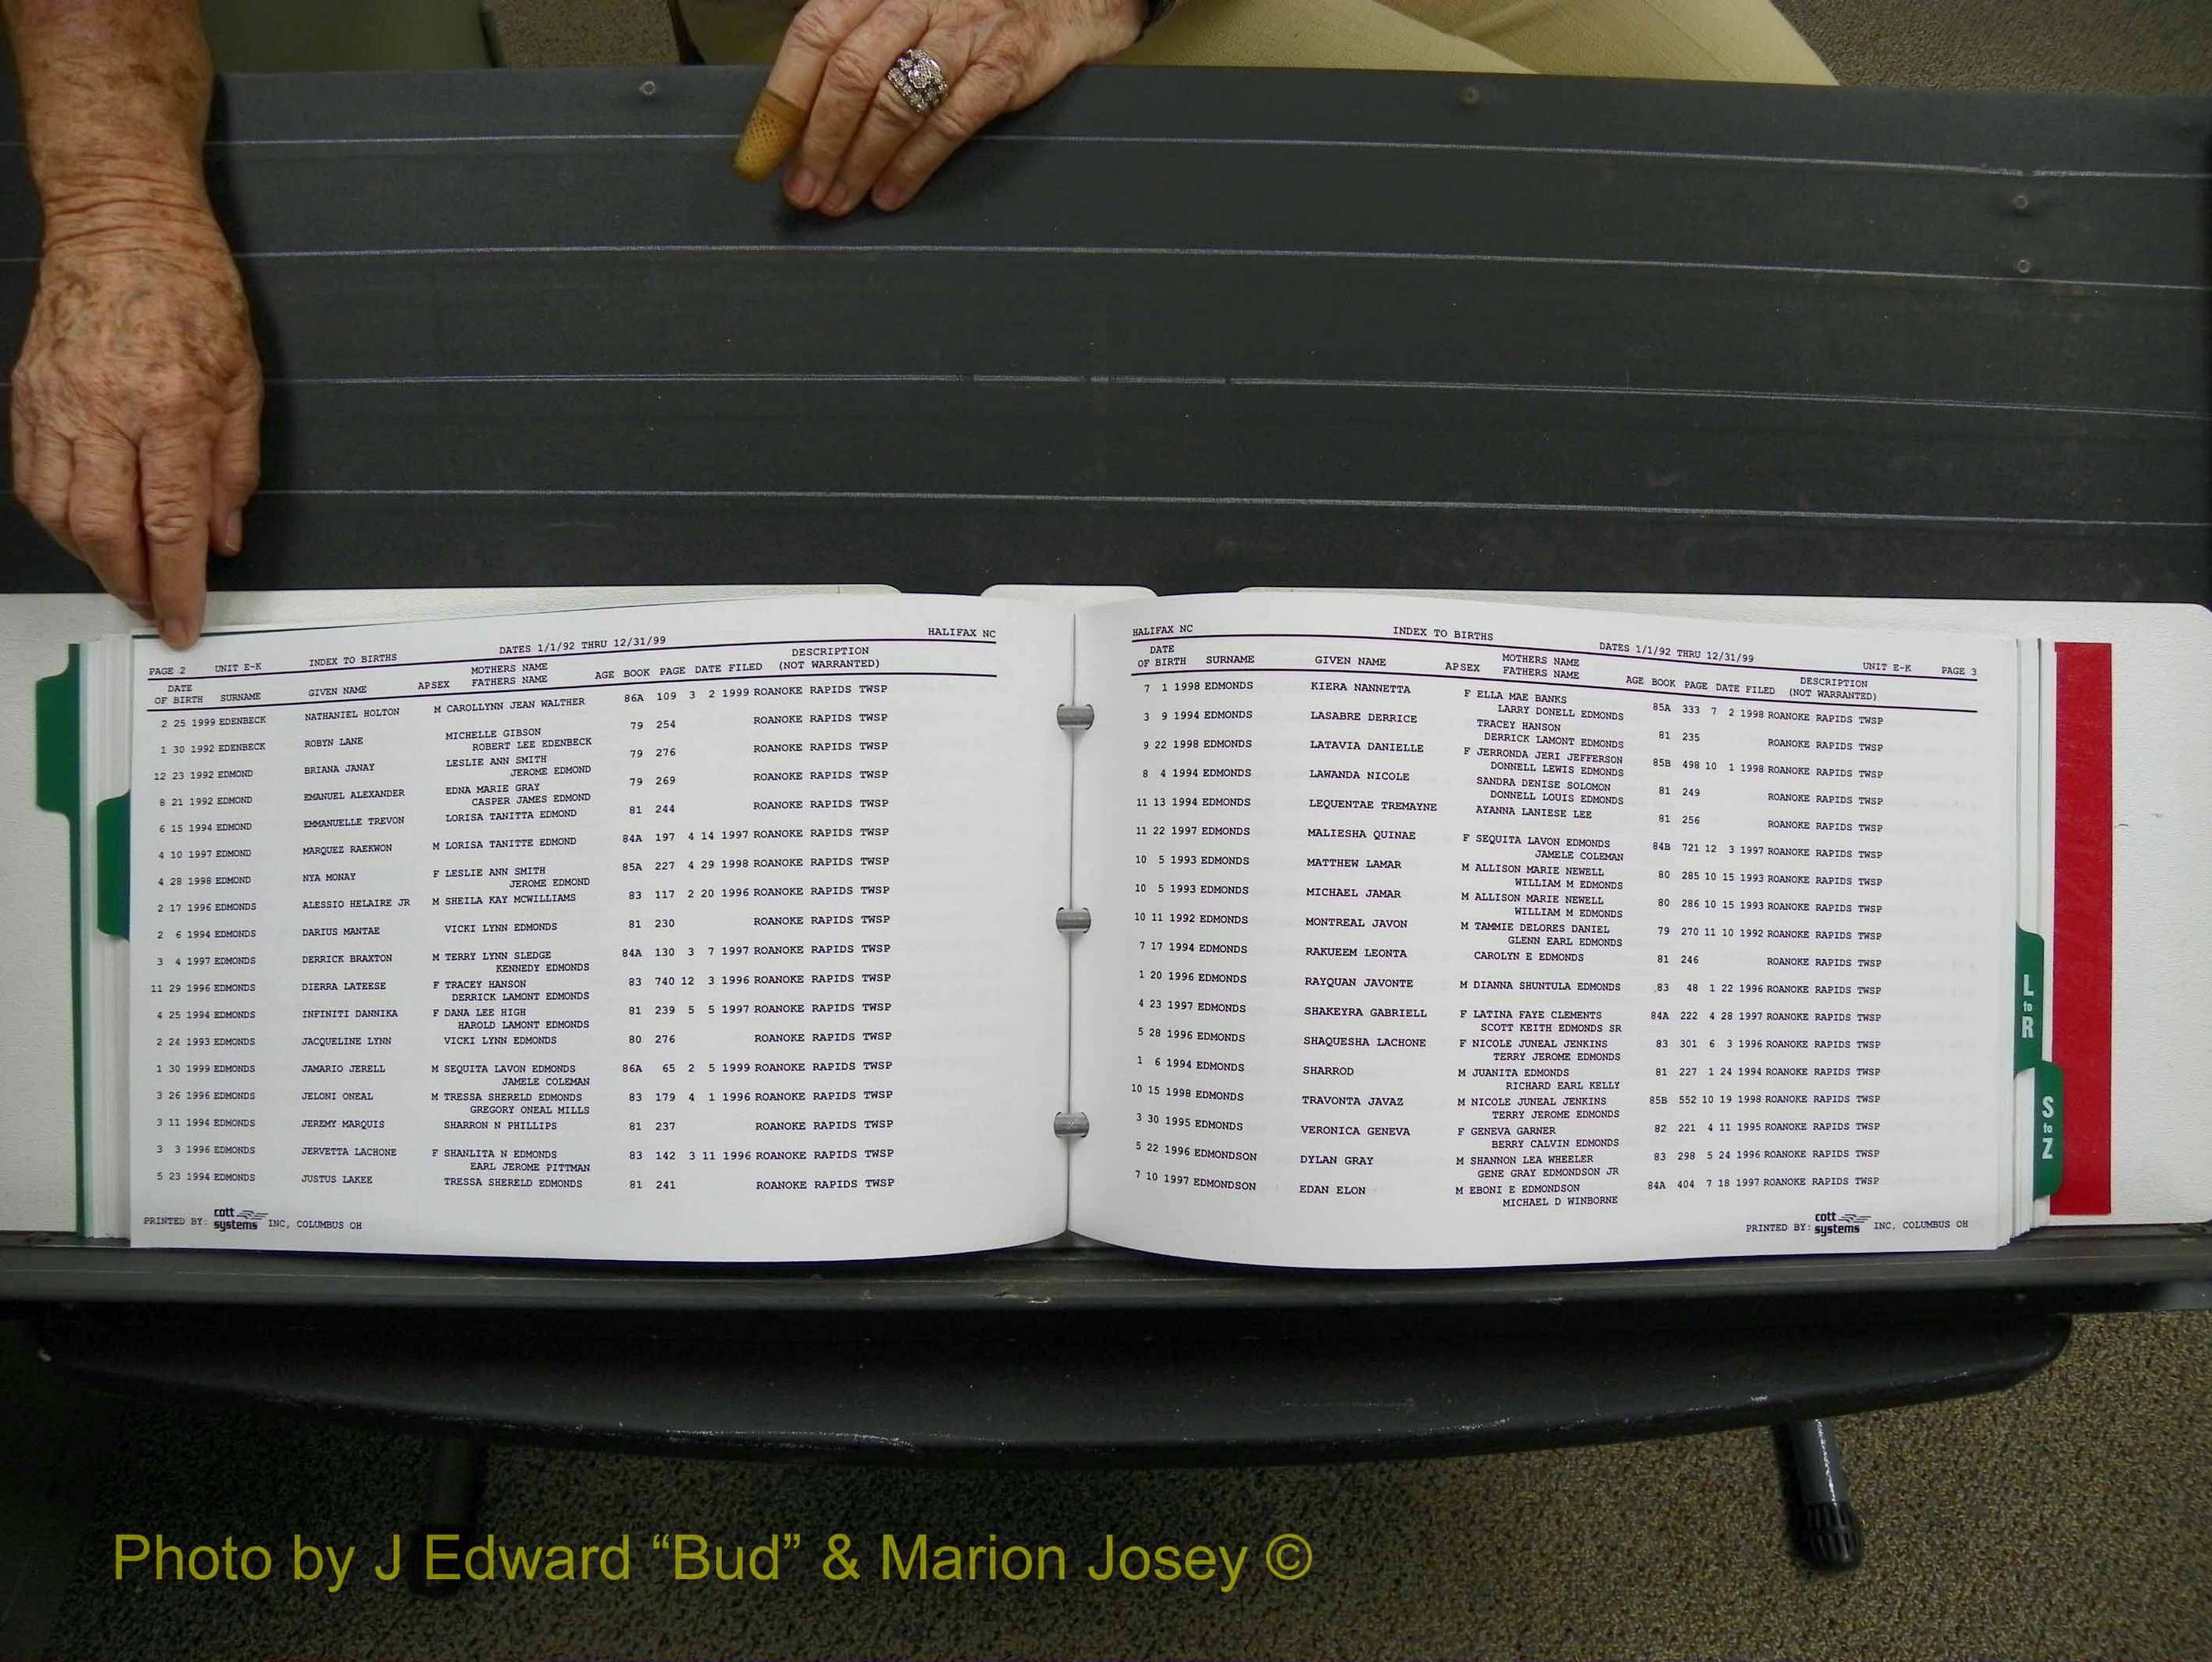 PAGE 2 UNIT E-K INDEX TO BIRTHS DATES 1/1/92 THRU 12/31/99 HALIFAX NC
DATE MOTHERS NAME DESCRIPTION
OF BIRTH SURNAME GIVEN NAME APSEX FATHERS NAME AGE BOOK PAGE DATE FILED (NOT WARRANTED)
2 25 1999 EDENBECK NATHANIEL HOLTON M CAROLLYNN JEAN WALTHER 86A 109 3 2 1999 ROANOKE RAPIDS TWSP
1 30 1992 EDENBECK ROBYN LANE MICHELLE GIBSON 79 254 ROANOKE RAPIDS TWSP
ROBERT LEE EDENBECK
12 23 1992 EDMOND BRIANA JANAY LESLIE ANN SMITH 79 276 ROANOKE RAPIDS TWSP
JEROME EDMOND
8 21 1992 EDMOND EMANUEL ALEXANDER EDNA MARIE GRAY 79 269 ROANOKE RAPIDS TWSP
CASPER JAMES EDMOND
6 15 1994 EDMOND EMMANUELLE TREVON LORISA TANITTA EDMOND 81 244 ROANOKE RAPIDS TWSP
4 10 1997 EDMOND MARQUEZ RAEKWON M LORISA TANITTE EDMOND 84A 197 4 14 1997 ROANOKE RAPIDS TWSP
4 28 1998 EDMOND NYA MONAY F LESLIE ANN SMITH 85A 227 4 29 1998 ROANOKE RAPIDS TWSP
JEROME EDMOND
2 17 1996 EDMONDS ALESSIO HELAIRE JR M SHEILA KAY MCWILLIAMS 83 117 2 20 1996 ROANOKE RAPIDS TWSP
2 6 1994 EDMONDS DARIUS MANTAE VICKI LYNN EDMONDS 81 230 ROANOKE RAPIDS TWSP
3 4 1997 EDMONDS DERRICK BRAXTON M TERRY LYNN SLEDGE 84A 130 3 7 1997 ROANOKE RAPIDS TWSP
KENNEDY EDMONDS
11 29 1996 EDMONDS DIERRA LATEESE F TRACEY HANSON 83 740 12 3 1996 ROANOKE RAPIDS TWSP
DERRICK LAMONT EDMONDS
4 25 1994 EDMONDS INFINITI DANNIKA F DANA LEE HIGH 81 239 5 5 1997 ROANOKE RAPIDS TWSP
HAROLD LAMONT EDMONDS
2 24 1993 EDMONDS JACQUELINE LYNN VICKI LYNN EDMONDS 80 276 ROANOKE RAPIDS TWSP
1 30 1999 EDMONDS JAMARIO JERELL M SEQUITA LAVON EDMONDS 86A 65 2 5 1999 ROANOKE RAPIDS TWSP
JAMELE COLEMAN
3 26 1996 EDMONDS JELONI ONEAL M TRESSA SHERELD EDMONDS 83 179 4 1 1996 ROANOKE RAPIDS TWSP
GREGORY ONEAL MILLS
3 11 1994 EDMONDS JEREMY MARQUIS SHARRON N PHILLIPS 81 237 ROANOKE RAPIDS TWSP
3 3 1996 EDMONDS JERVETTA LACHONE F SHANLITA N EDMONDS 83 142 3 11 1996 ROANOKE RAPIDS TWSP
EARL JEROME PITTMAN
5 23 1994 EDMONDS JUSTUS LAKEE TRESSA SHERELD EDMONDS 81 241 ROANOKE RAPIDS TWSP
PRINTED BY: cott systems INC, COLUMBUS OH
HALIFAX NC INDEX TO BIRTHS DATES 1/1/92 THRU 12/31/99 UNIT E-K PAGE 3
DATE MOTHERS NAME DESCRIPTION
OF BIRTH SURNAME GIVEN NAME APSEX FATHERS NAME AGE BOOK PAGE DATE FILED (NOT WARRANTED)
7 1 1998 EDMONDS KIERA NANNETTA F ELLA MAE BANKS 85A 333 7 2 1998 ROANOKE RAPIDS TWSP
LARRY DONELL EDMONDS
3 9 1994 EDMONDS LASABRE DERRICE TRACEY HANSON 81 235 ROANOKE RAPIDS TWSP
DERRICK LAMONT EDMONDS
9 22 1998 EDMONDS LATAVIA DANIELLE F JERRONDA JERI JEFFERSON 85B 498 10 1 1998 ROANOKE RAPIDS TWSP
DONNELL LEWIS EDMONDS
8 4 1994 EDMONDS LAWANDA NICOLE SANDRA DENISE SOLOMON 81 249 ROANOKE RAPIDS TWSP
DONNELL LOUIS EDMONDS
11 13 1994 EDMONDS LEQUENTAE TREMAYNE AYANNA LANIESE LEE 81 256 ROANOKE RAPIDS TWSP
11 22 1997 EDMONDS MALIESHA QUINAE F SEQUITA LAVON EDMONDS 84B 721 12 3 1997 ROANOKE RAPIDS TWSP
JAMELE COLEMAN
10 5 1993 EDMONDS MATTHEW LAMAR M ALLISON MARIE NEWELL 80 285 10 15 1993 ROANOKE RAPIDS TWSP
WILLIAM M EDMONDS
10 5 1993 EDMONDS MICHAEL JAMAR M ALLISON MARIE NEWELL 80 286 10 15 1993 ROANOKE RAPIDS TWSP
WILLIAM M EDMONDS
10 11 1992 EDMONDS MONTREAL JAVON M TAMMIE DELORES DANIEL 79 270 11 10 1992 ROANOKE RAPIDS TWSP
GLENN EARL EDMONDS
7 17 1994 EDMONDS RAKUEEM LEONTA CAROLYN E EDMONDS 81 246 ROANOKE RAPIDS TWSP
1 20 1996 EDMONDS RAYQUAN JAVONTE M DIANNA SHUNTULA EDMONDS 83 48 1 22 1996 ROANOKE RAPIDS TWSP
4 23 1997 EDMONDS SHAKEYRA GABRIELL F LATINA FAYE CLEMENTS 84A 222 4 28 1997 ROANOKE RAPIDS TWSP
SCOTT KEITH EDMONDS SR
5 28 1996 EDMONDS SHAQUESHA LACHONE F NICOLE JUNEAL JENKINS 83 301 6 3 1996 ROANOKE RAPIDS TWSP
TERRY JEROME EDMONDS
1 6 1994 EDMONDS SHARROD M JUANITA EDMONDS 81 227 1 24 1994 ROANOKE RAPIDS TWSP
RICHARD EARL KELLY
10 15 1998 EDMONDS TRAVONTA JAVAZ M NICOLE JUNEAL JENKINS 85B 552 10 19 1998 ROANOKE RAPIDS TWSP
TERRY JEROME EDMONDS
3 30 1995 EDMONDS VERONICA GENEVA F GENEVA GARNER 82 221 4 11 1995 ROANOKE RAPIDS TWSP
BERRY CALVIN EDMONDS
5 22 1996 EDMONDSON DYLAN GRAY M SHANNON LEA WHEELER 83 298 5 24 1996 ROANOKE RAPIDS TWSP
GENE GRAY EDMONDSON JR
7 10 1997 EDMONDSON EDAN ELON M EBONI E EDMONDSON 84A 404 7 18 1997 ROANOKE RAPIDS TWSP
MICHAEL D WINBORNE
PRINTED BY: cott systems INC, COLUMBUS OH
L to R
S to Z
Photo by J Edward “Bud” & Marion Josey ©